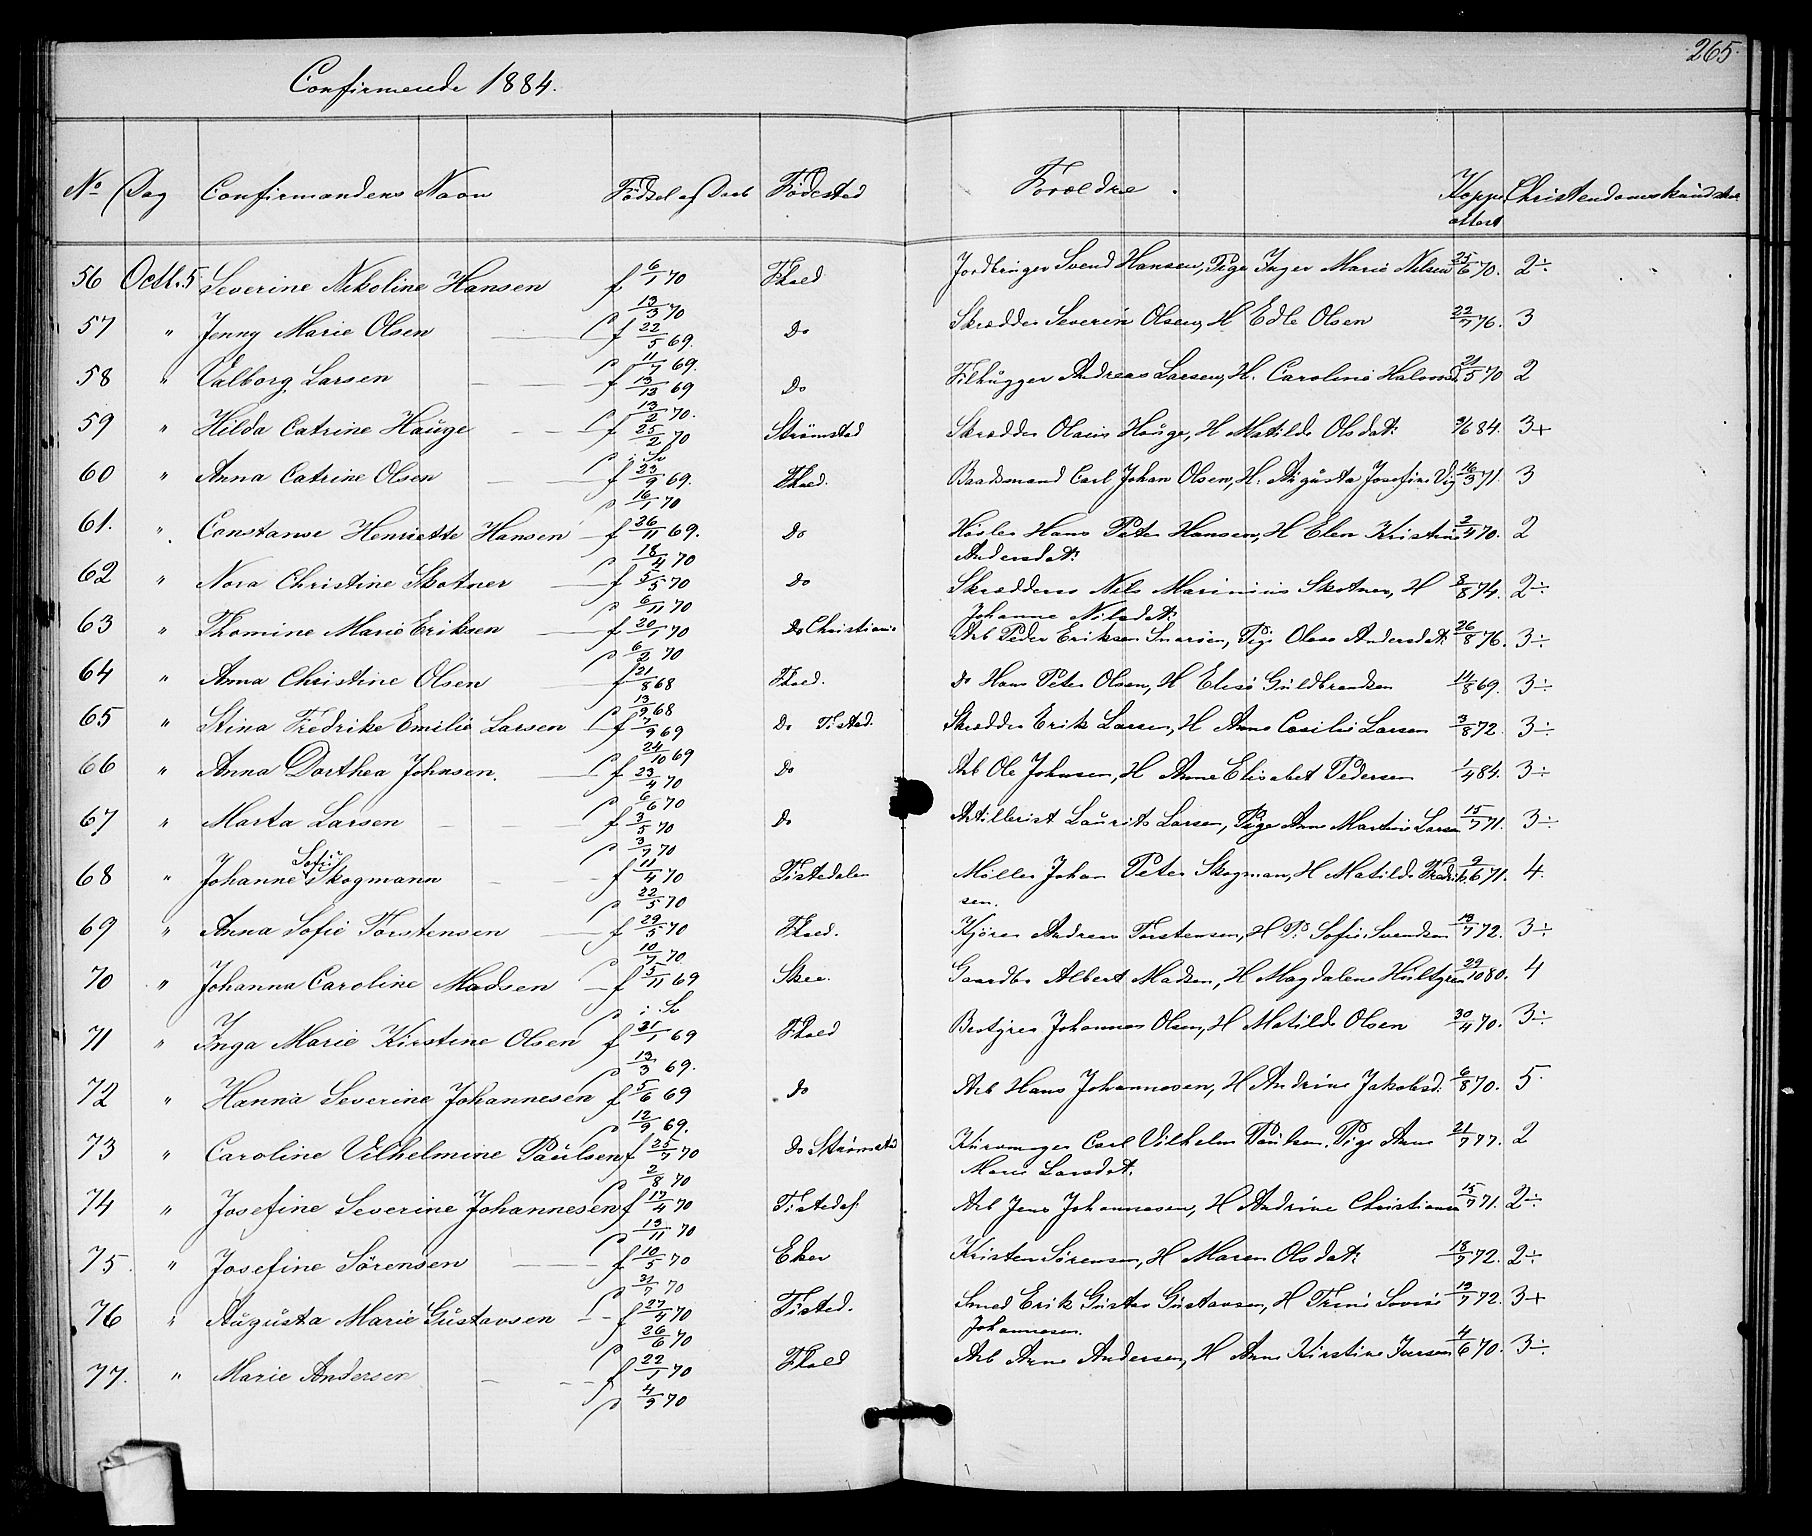 265.
Confirmerede 1884.
No Dag Confirmandens Navn Födsel og Daab Födested Forældre Koppe- Christendomskundskab
attest
56 Octb. 5. Severine Nikoline Hansen f 6/1 70 Fhald Jordbringer Svend Hansen, Pige Inger Marie Nilsen 25/6 70. 2÷
13/3 70
57 " Jenny Marie Olsen f 22/5 69. Do Skrædder Severin Olsen, H Edle Olsen 22/7 76. 3
11/7 69.
58 " Valborg Larsen f 13/13 69 Do Filhugger Andreas Larsen, H. Caroline 21/5 70 2
13/2 70.
59 " Hilda Catrine Hauge f 25/2 70 Strömstad Skrædder Olaus Hauge, H Matilde Olsdat: 84. 3+
i Sv
60 " Anna Catrine Olsen f 23/9 69. Fhald. Baadsmand Carl Johan Olsen, H. Augusta Josefine 16/3 71. 3
16/1 70
61. " Constanse Henriette Hansen f 26/11 69. Do Hans Peter Hansen, H Elen Kristine 2/4 70. 2
18/4 70 Andersdat:
62 " Nora Christine Skotner f 5/5 70 Do Skrædder Nils Marinius Skotner, H 8/8 74. 2÷
6/11 70 Johanne Nilsdat:
63 " Thomine Marie Eriksen f 20/1 70 Do Christiania Arb Peder Eriksen Snarien, Pige Olava Andersdat: 26/8 76. 3÷
6/2 70
64 " Anna Christine Olsen f 21/8 68 Fhald. Do Hans Peter Olsen, H Elise Guldbrandsen 14/8 69. 3÷
13/9 68
65 " Stina Fredrike Emilie Larsen f 7/9 69 Do Tisted. Skrædder Erik Larsen, H Anna Cæsilie Larsen 3/8 72. 3÷
24/10 69
66 " Anna Dorthea Johnsen. f 23/4 70 Do Arb Ole Johnsen, H Anne Elisabet Pedersen 1/4 84. 3÷
6/6 70
67 " Marta Larsen f 3/5 70 Do Artillerist Laurits Larsen, Pige Anne Martine Larsen 15/7 71. 3÷
3/7 70
68 " Johanne Sofie Skogmann f 11/4 70 Tistedalen Møller Johan Peter Skogman, H Matilde Fredrik- 9/6 71. 4.
22/5 70 sen.
69 " Anna Sofie Torstensen f 29/5 70 Fhald. Kjører Andreas Torstensen, H P. Sofie Svendsen 13/7 72. 3÷
10/7 70
70 " Johanna Caroline Madsen f 5/11 69 Skee. Gaardbr Albert Madsen, H Magdalena Hultgren 29/10 80. 4
i Sv
71 " Inga Marie Kirstine Olsen f 21/1 69 Fhald Bestyrer Johannes Olsen, H Matilde Olsen 30/4 70. 3÷
13/3 69.
72 " Hanna Severine Johannesen f 5/6 69 Do Arb Hans Johannesen, H Andrine Jakobsd. 6/8 70. 5
12/9 69.
73 " Caroline Vilhelmine Paulsen f 25/7 70 Do Strømstad Kurvmager Carl Vilhelm Paulsen. Pige Anne 21/7 77. 2
2/8 70 Marie Larsdat:
74 " Josefine Severine Johannesen f 17/4 70 Tistedal. Arb Jens Johannesen, H Andrine Christiansen 15/7 71. 2÷
13/11 70
75. " Josefine Sörensen f 10/5 70 Eker Kristen Sörensen, H Maren Olsdat: 18/7 72. 2÷
31/7 70
76 " Augusta Marie Gustavsen f 27/4 70 Tisted. Smed Erik Gustav Gustavsen, H Trine Lovise 19/7 72. 3+
26/6 70 Johannesen.
77. " Marie Andersen f 22/1 70 Fhald Arb Arne Andersen, H Anne Kirstine Iversen 4/6 70. 3÷
4/9 70